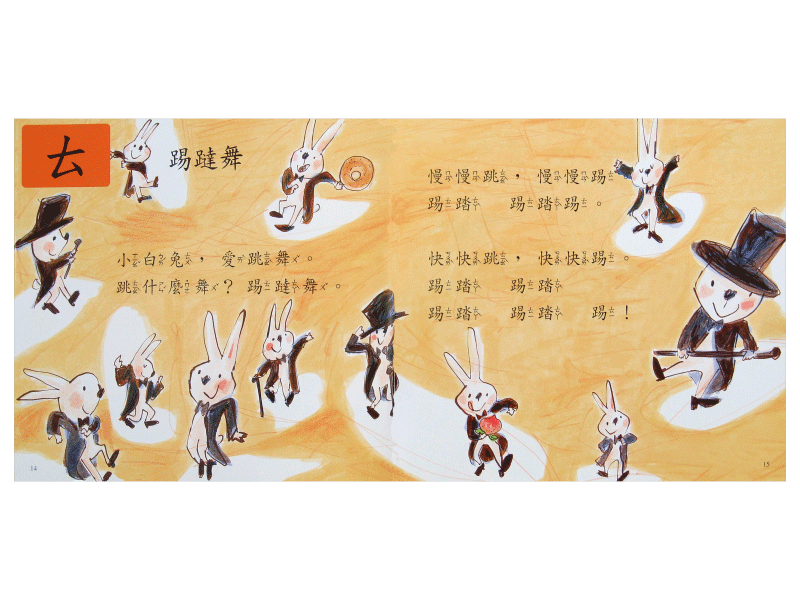 ㄊ
踢躂舞
小白兔，愛跳舞。
跳什麼舞？踢躂舞。
14
慢慢跳，慢慢踢
踢踏　踢踏踢。
快快跳，快快踢。
踢踏　踢踏
踢踏　踢踏　踢！
15